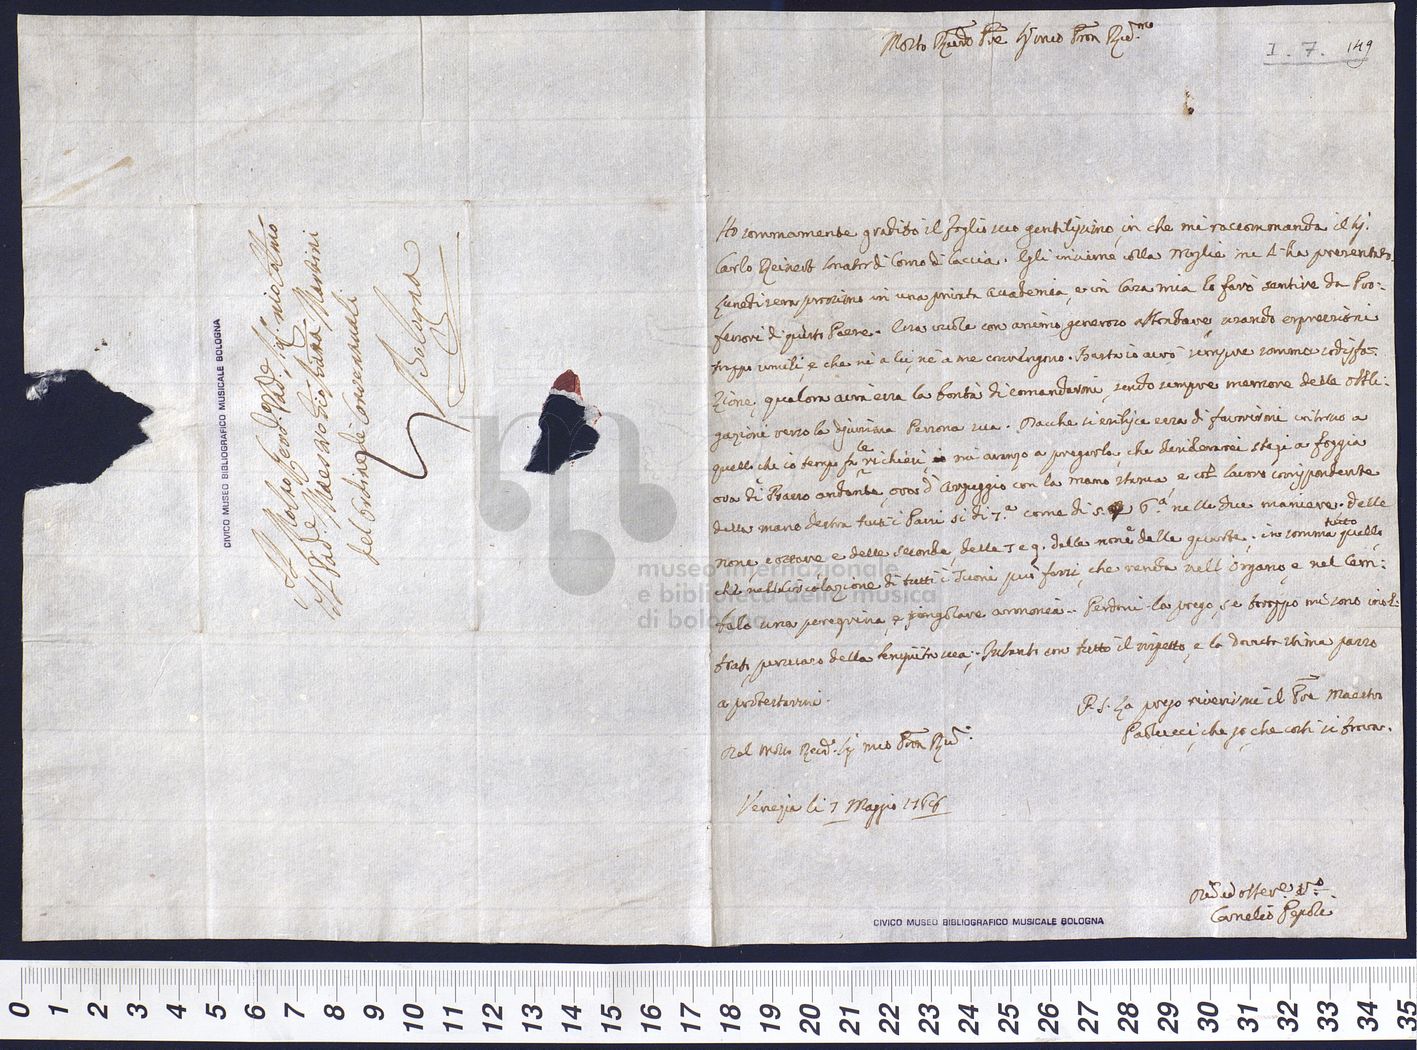 Molto Revdo Pre Sig mio Pron Rev.mo
I. 7. 149
Ho sommamente gradito il foglio suo gentilissimo, in che mi raccomanda il Sig.
Carlo Reinert sonator di Corno di caccia. Egli insieme colla Moglie mi si ha presentato.
Lunedì sera prossimo in una privata Accademia, e in Casa mia lo farò sentire da Pro-
fessori di questo Paese. Essa vuole con animo generoso usando espressioni
troppo umili, e che nè a lui, nè a me convengono. Basta io avrò sempre somma sodisfa-
zione, qualora avrà essa la bontà di comandarmi, sendo sempre memore delle obbli-
gazioni verso la Persona sua. di favorirmi intorno a
quello che io tempo fa le richiesi, mi avanzo a pregarla, che desidererei stesi a foggia
ora di Basso andante, ora di Arpeggio con la mano stanca e col lavoro corrispondente
della mano destra tutti i Passi sì di 7.a come di 6.a nelle due maniere. Delle
none, e ottave e delle seconde, delle 7 e 9. delle none delle quarte, in somma tutto quello,
di tutti i Tuoni può farsi, che renda nell'Organo, e nel Cem-
balo una peregrina, e singolare armonia. Perdoni la prego, se troppo mi sono inol-
trato, persuaso della sua. Intanto con tutto il rispetto, e la dovuta stima passo
a protestarmi.
P.S. La prego riverirmi il Pre Maestro
Paolucci, che so, che costì si trova.
Del Molto Revd. Sig mio Pron Rev.
Venezia li 7 Maggio 1766
Cornelio Pepoli
Al Molto Revdo Pre
Il Pad.e Maestro Gio: Martini
del Ordine de Conventuali
Bologna
CIVICO MUSEO BIBLIOGRAFICO MUSICALE BOLOGNA
CIVICO MUSEO BIBLIOGRAFICO MUSICALE BOLOGNA
museo internazionale
e biblioteca della musica
di bologna
0 1 2 3 4 5 6 7 8 9 10 11 12 13 14 15 16 17 18 19 20 21 22 23 24 25 26 27 28 29 30 31 32 33 34 35